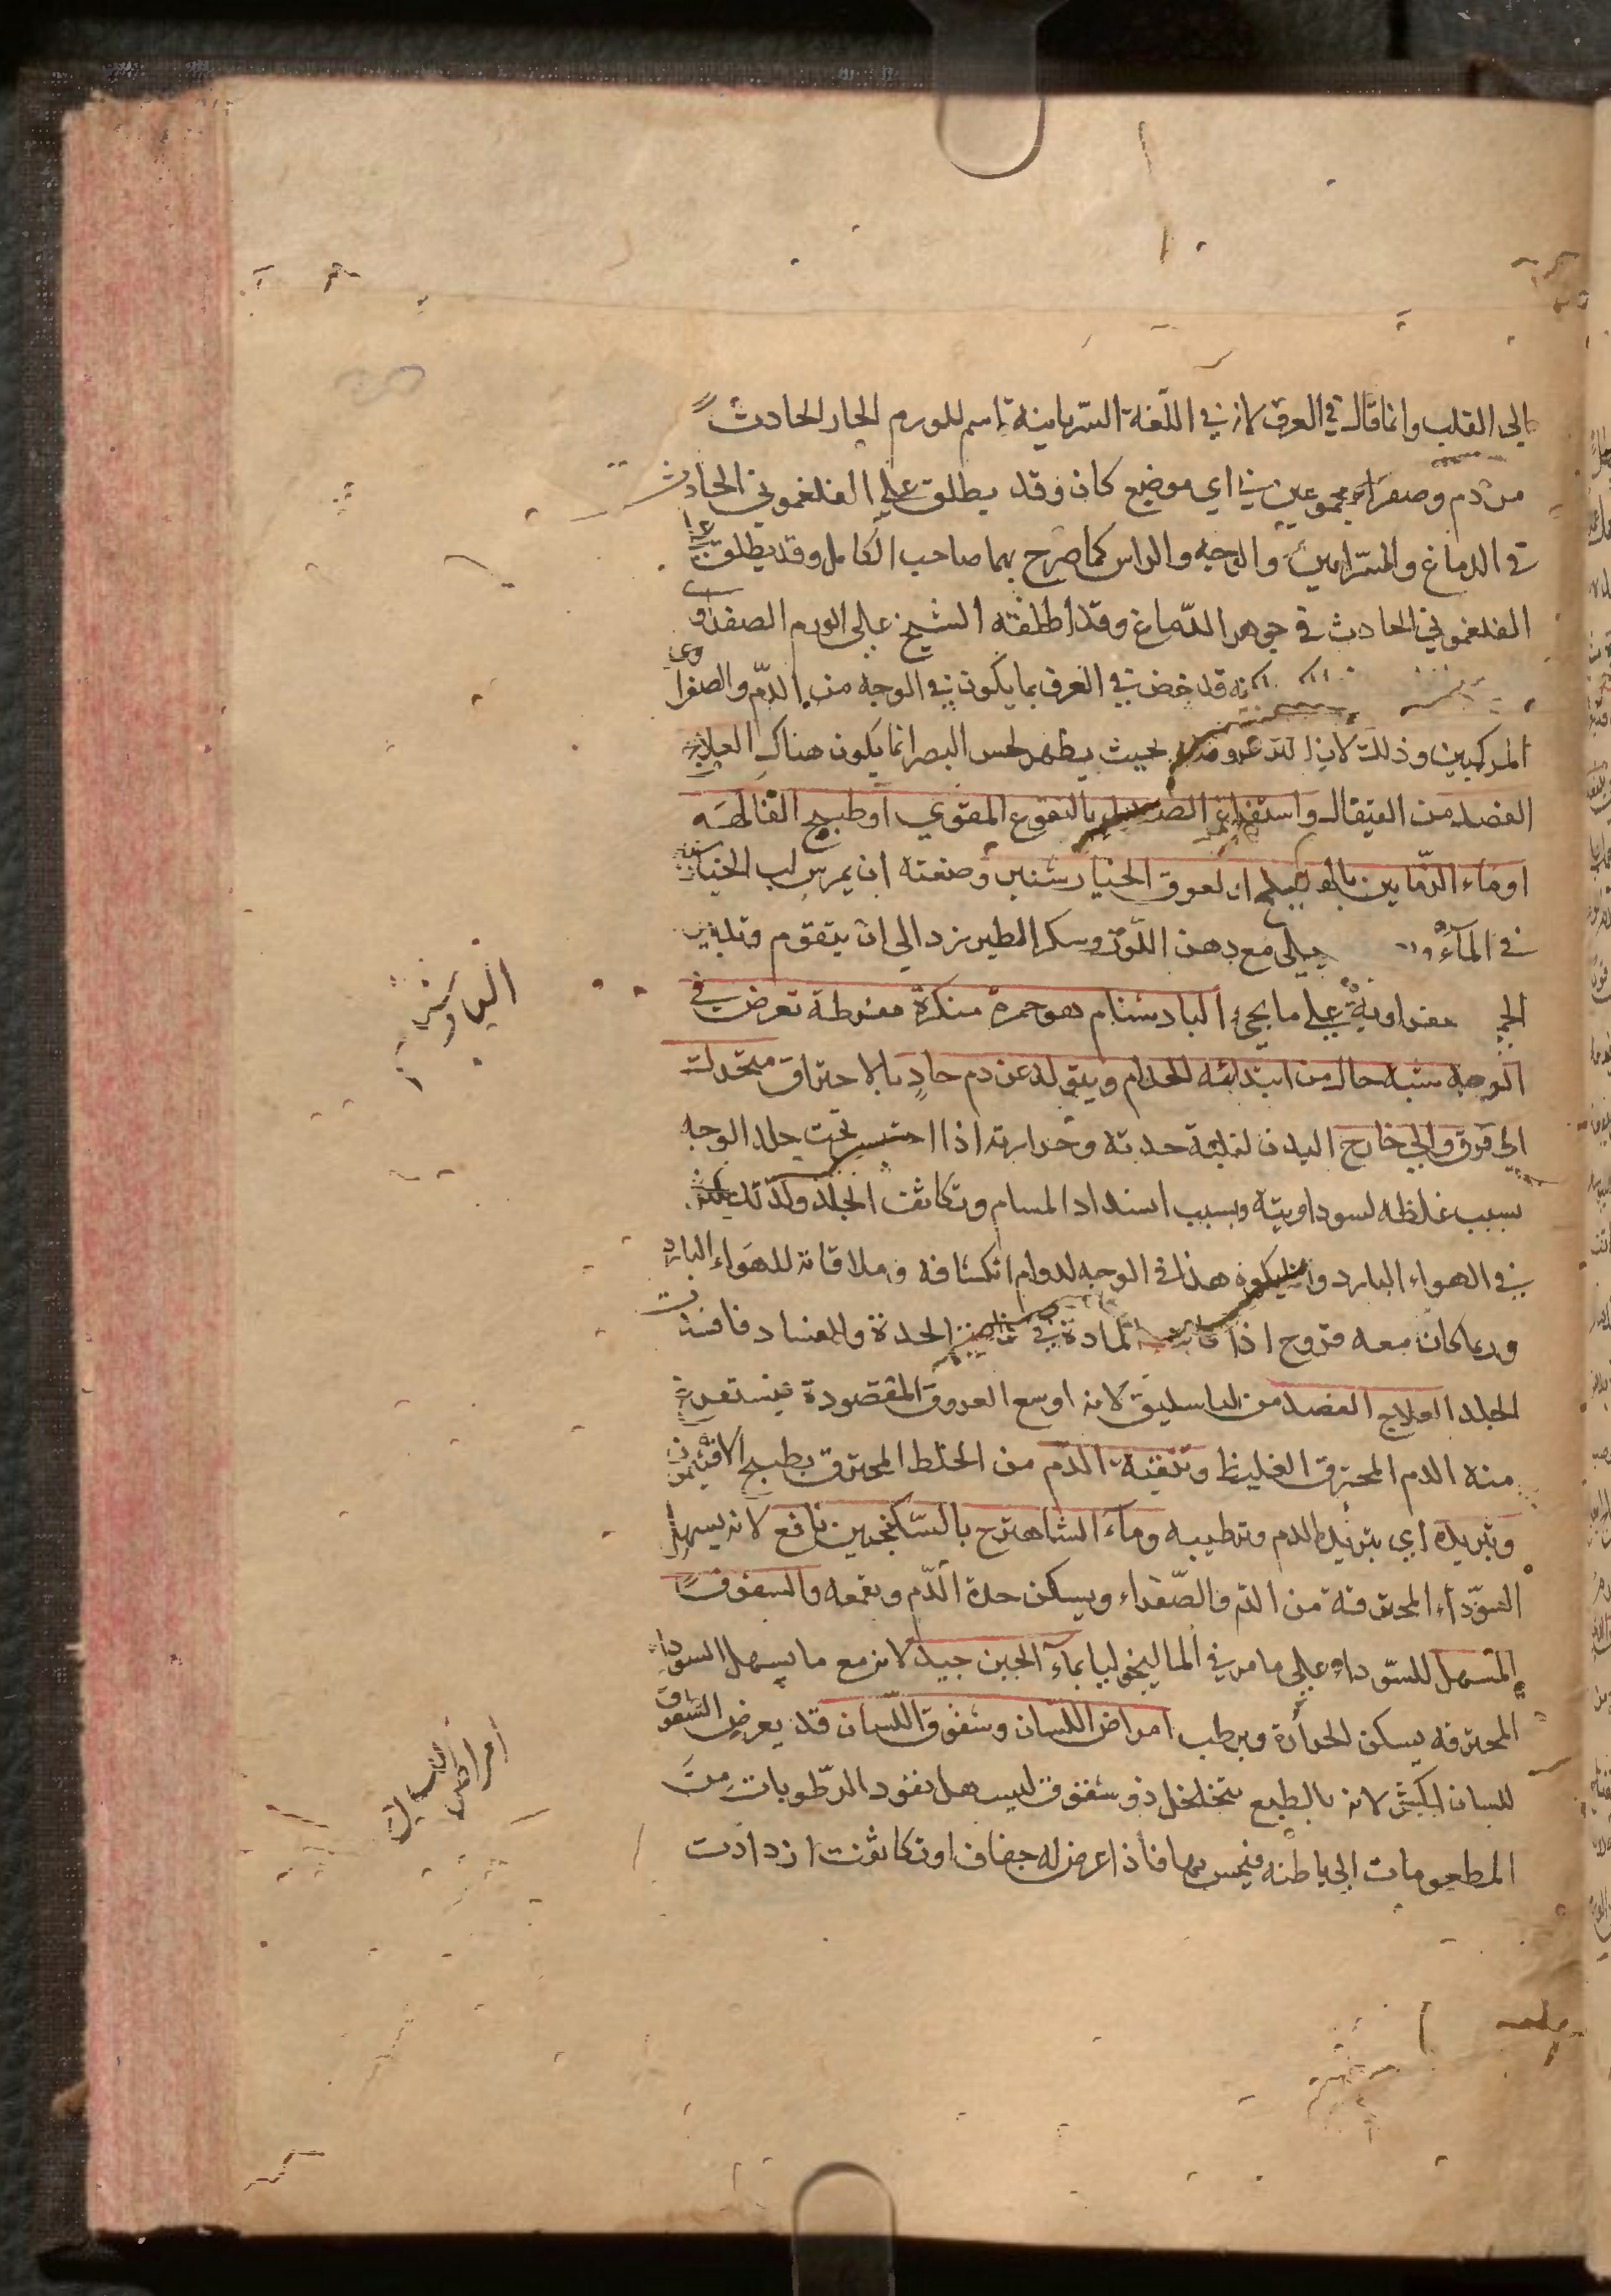 الى القلب وانما قال في العرف لانه في اللغة السريانية اسم للورم الحار الحادث
من دم وصفراء مجموعين في اي موضع كان وقد يطلق على الفلغموني الحادث
في الدماغ والوجه والراس كما صرح بهما صاحب الكامل وقد يطلق على
الفلغموني الحادث في جوهر الدماغ وقد اطلقه الشيخ على الورم الصفراوي
قد خص في العرف بما يكون في الوجه من الدم والصفرا
المركبين وذلك لان بحيث يظهر لحس البصر انما يكون هناك العلاج
الفصد من القيفال واستفراغ بالنقوع المقوي او طبيخ الفاكهة
او ماء الرمانين لعوق الخيارشنبر وصفته ان يمرس لب الخيارشنبر
في الماء مع دهن اللوز وسكر الطبرزد الى ان يتقوم
على ما يجيء الباد شنام هو حمرة منكرة مفرطة تعرض في
الوجه شبه حال من ابتدائه الجذام ويتولد عن دم حاد بالاحتراق متحرك
الى فوق والى خارج البدن لغلبة حدته وحرارته اذا احتبس تحت جلد الوجه
بسبب غلظه لسوداويته وبسبب انسداد المسام وتكاثف الجلد ولذلك يكثر
في الهواء البارد وانما يكون هذا في الوجه لدوام انكشافه وملاقاته للهواء البارد
وربما كان معه قروح اذا كانت المادة في الحدة والفساد فافسدت
الجلد العلاج الفصد من الباسليق لانه اوسع العروق المقصودة فيستفرغ
منه الدم المحترق الغليظ وتنقية الدم من الخلط المحترق بطبيخ الافتيمون
وتبريده اي تبريد الدم وترطيبه وماء الشاهترج بالسكنجبين نافع لانه يسهل
السوداء المحترقة من الدم والصفراء ويسكن حدة الدم ويقمعه والسفوف
المسهل للسوداء على ما مر في الماليخوليا بماء الجبن جيد لانه مع ما يسهل السوداء
المحترقه يسكن الحرارة ويرطب امراض اللسان وشقوق اللسان قد يعرض الشقوق
للسان لانه بالطبع متخلخل ذو شقوق ليسهل نفوذ الرطوبات من
المطعومات الى باطنه فيحس بها فاذا عرض له جفاف او تكاثفت ازدادت
امراض اللسان